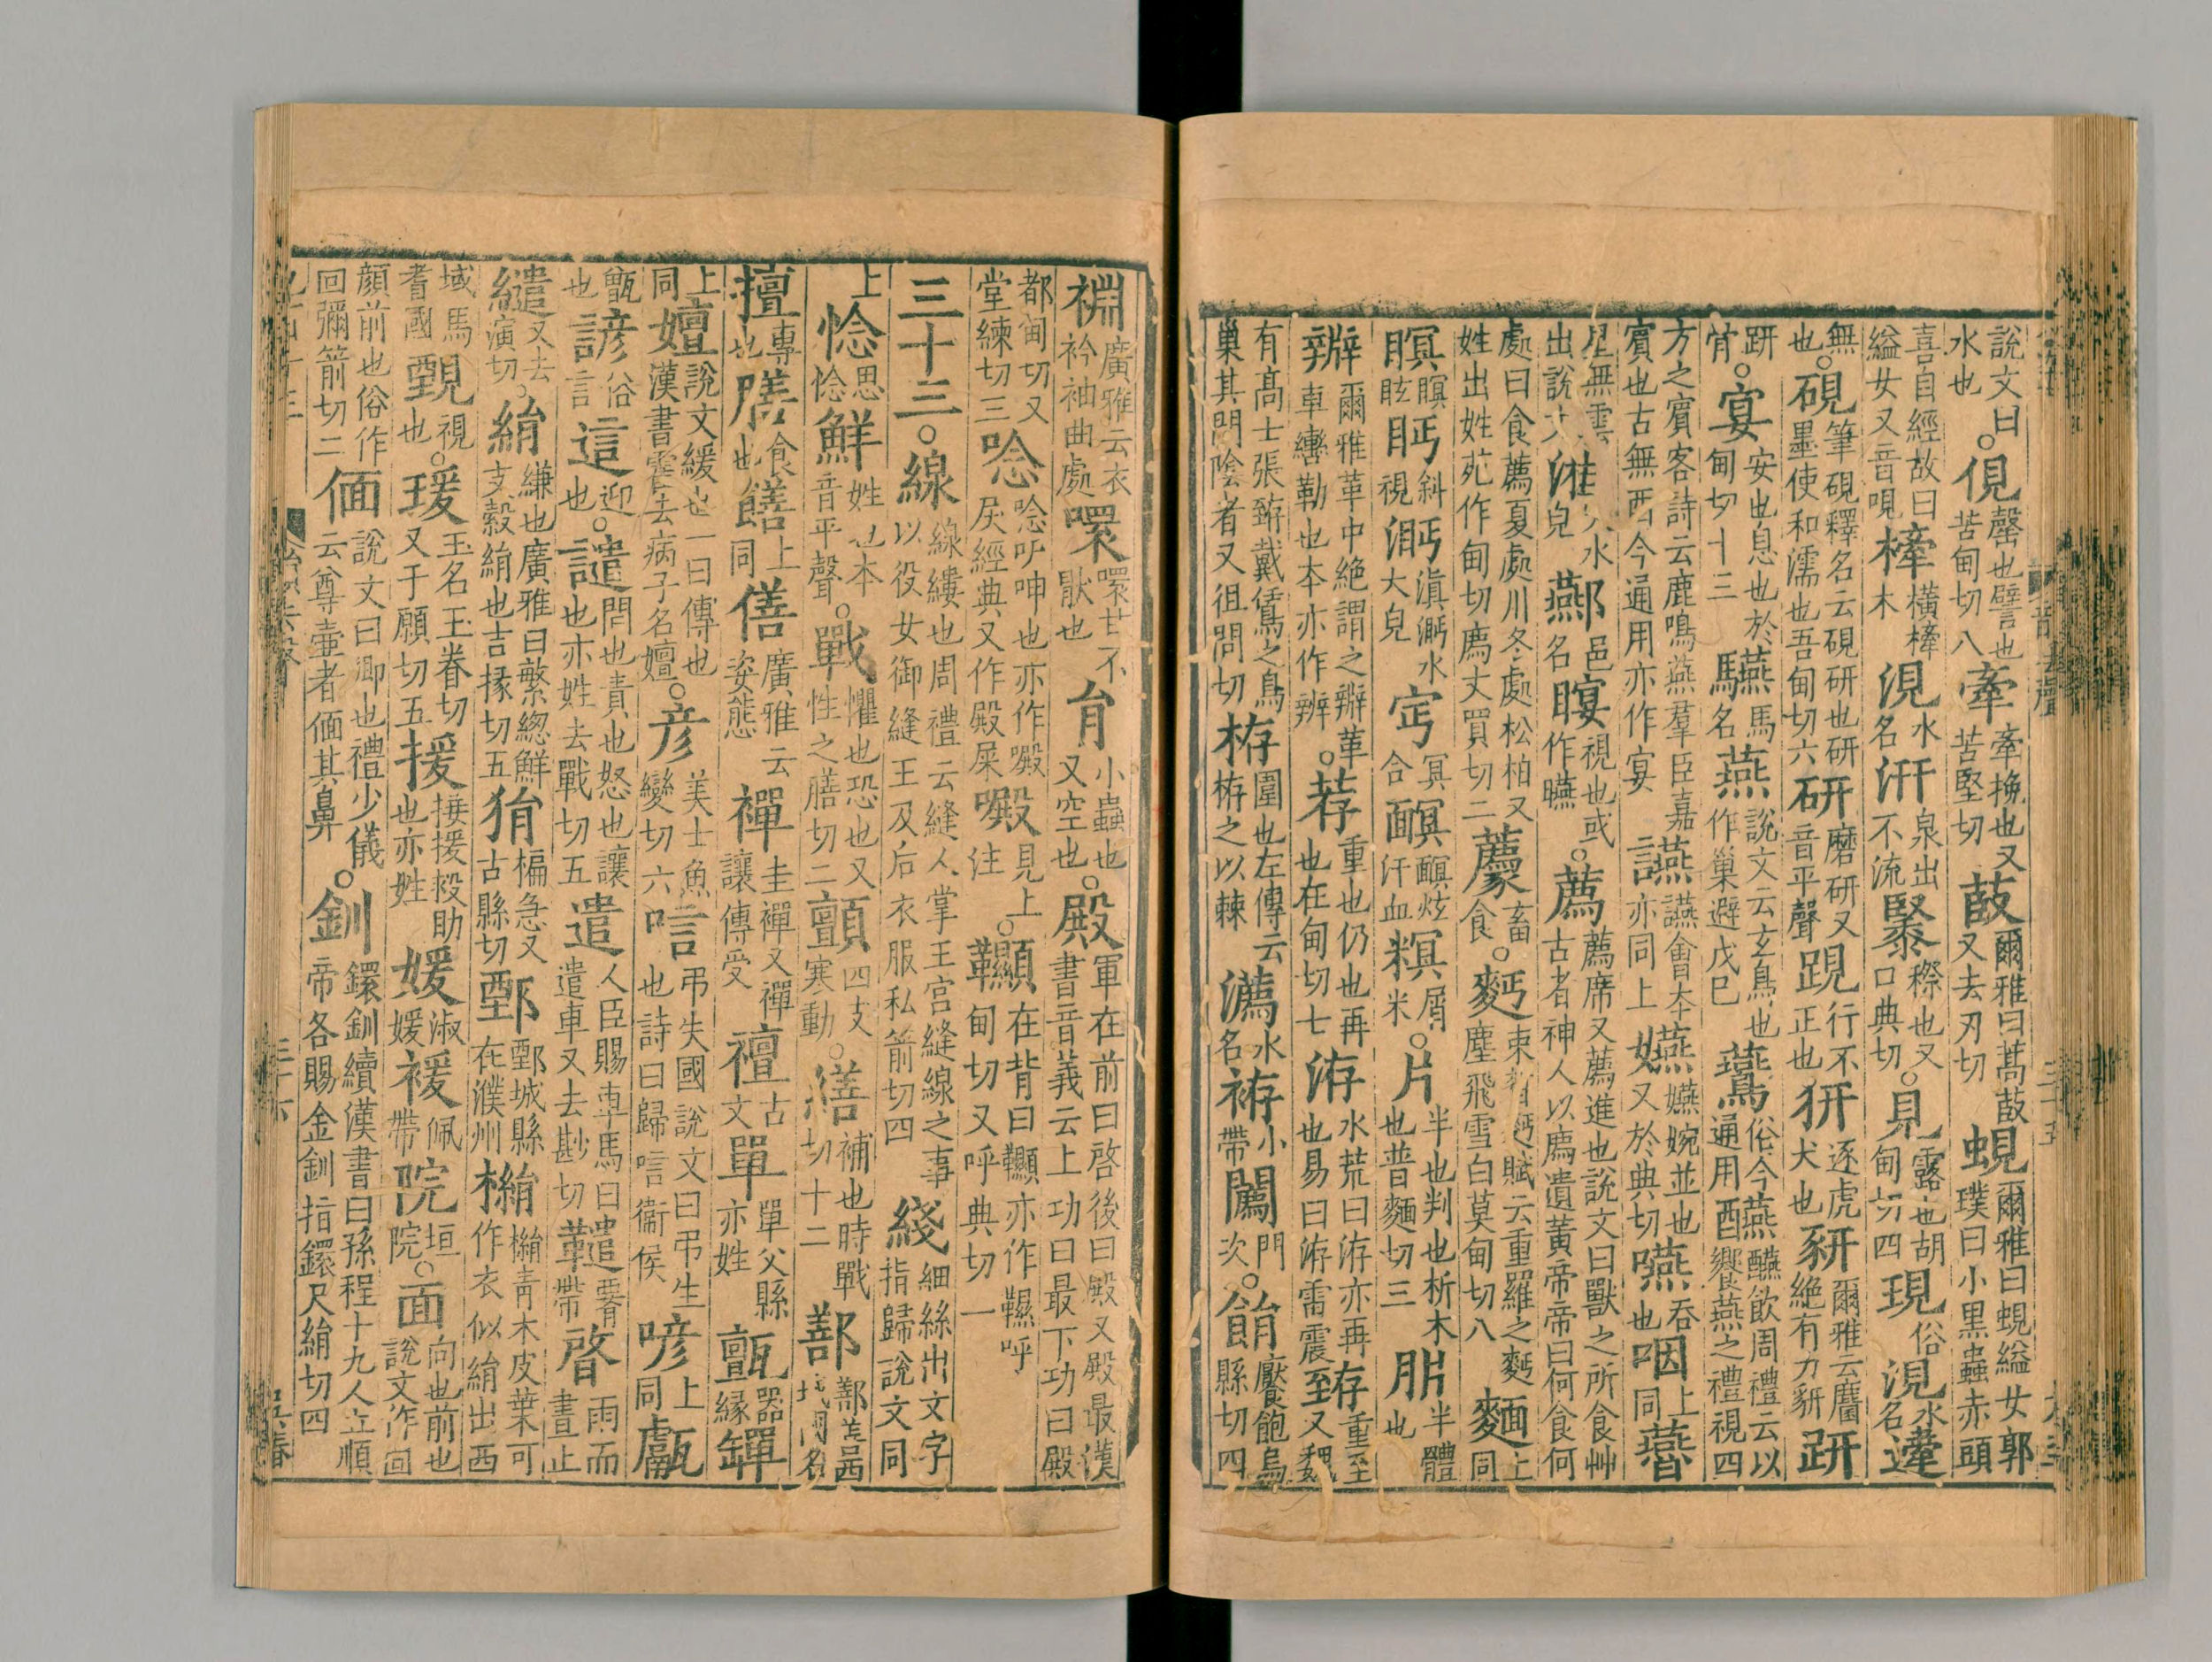 說文曰水也。俔磬也譬也苦甸切八牽牽挽也又苦堅切菣爾雅曰蒿菣又去刃切蜆爾雅曰蜆縊女郭璞曰小黒蟲赤頭
喜自經故曰縊女又音哯㯠橫㯠木涀水名汧泉出不流口典切。見露也胡甸切四現俗涀水名
無也。硯筆硯釋名云硯研也研墨使和濡也吾甸切六研磨研又音平聲趼行不正也犴逐虎犬也豣爾雅云麕絶有力豣趼
趼骨。宴安也息也於甸切十三驠馬名燕說文云玄鳥也作巢避戊巳鷰俗今通用醼醼飲周禮云以饗燕之禮視四
方之賓客詩云鹿鳴燕羣臣嘉賓也古無酉今通用亦作宴讌讌會本亦同上嬿嬿婉並也又於典切嚥吞也咽上同
星無雲出說文水皃酀邑名䁙視也或作曣。薦薦席又薦進也說文曰獸之所食艸古者神人以廌遺黃帝帝曰何食何
處曰食薦夏處川冬處松柏又姓出姓苑作甸切廌丈買切二畜食。麪束晳麪賦云重羅之麪塵飛雪白莫甸切八麵上同
瞑瞑眩眄斜眄視湎滇㴐水大皃㝉冥合䤄䤄炫汗血䊳屑米。片半也判也析木也普麵切三胖半體也
辮爾雅革中絶謂之辮革車轡勒也本亦作辨。荐重也仍也再也在甸切七洊水荒曰洊亦再也易曰洊雷震臶重至又
有高士張臶戴鵀之鳥巢其門陰者又徂問切栫圍也左傳云栫之以棘瀳水名袸小帶闐門次。䬼饜飽烏縣切四
裫廣雅云衣衿袖曲處噮噮甘不猒也肙小蟲也又空也。殿軍在前曰啓後曰殿又殿最漢書音義云上功曰最下功曰殿
都甸切又堂練切三唸唸吚呻也亦作㘙㞘經典又作殿屎㘙見上注。韅在背曰韅亦作䩤呼甸切又呼典切一
三十三。線線縷也周禮云縫人掌王宫縫線之事以役女御縫王及后衣服私箭切四綫細絲出文字指歸說文同
上㦓思㦓鮮姓也本音平聲。戰懼也恐也又性之膳切二顫四支寒動。繕補也時戰切十二鄯鄯善西域國名
擅專也膳食也饍上同僐廣雅云姿態襌圭襌又襌讓傳受禮古文單單父縣亦姓甎器緣
上同嬗說文緩也一曰傳也漢書霍去病子名嬗。彦美士魚變切六唁弔失國說文曰弔生也詩曰歸唁衞侯喭上同甗
甑也諺俗言這迎也。譴問也責也怒也讓也亦姓去戰切五遣人臣賜車馬曰遣車又去㪁切䪈帶啓雨而晝止
繾又去演切。絹縑也廣雅曰繁總鮮支縠絹也吉掾切五狷褊急又古縣切鄄鄄城縣在濮州㯞㯞青木皮葉可作衣似絹出西
域烏耆國䚈視也。瑗玉名王眷切又于願切五援接援救助也亦姓媛淑媛褑佩帶院垣院。面向也前也說文作𡇢
顏前也俗作靣彌箭切二偭說文曰鄉也禮少儀云尊壷者偭其鼻。釧鐶釧續漢書曰孫程十九人立順帝各賜金釧指鐶尺絹切四